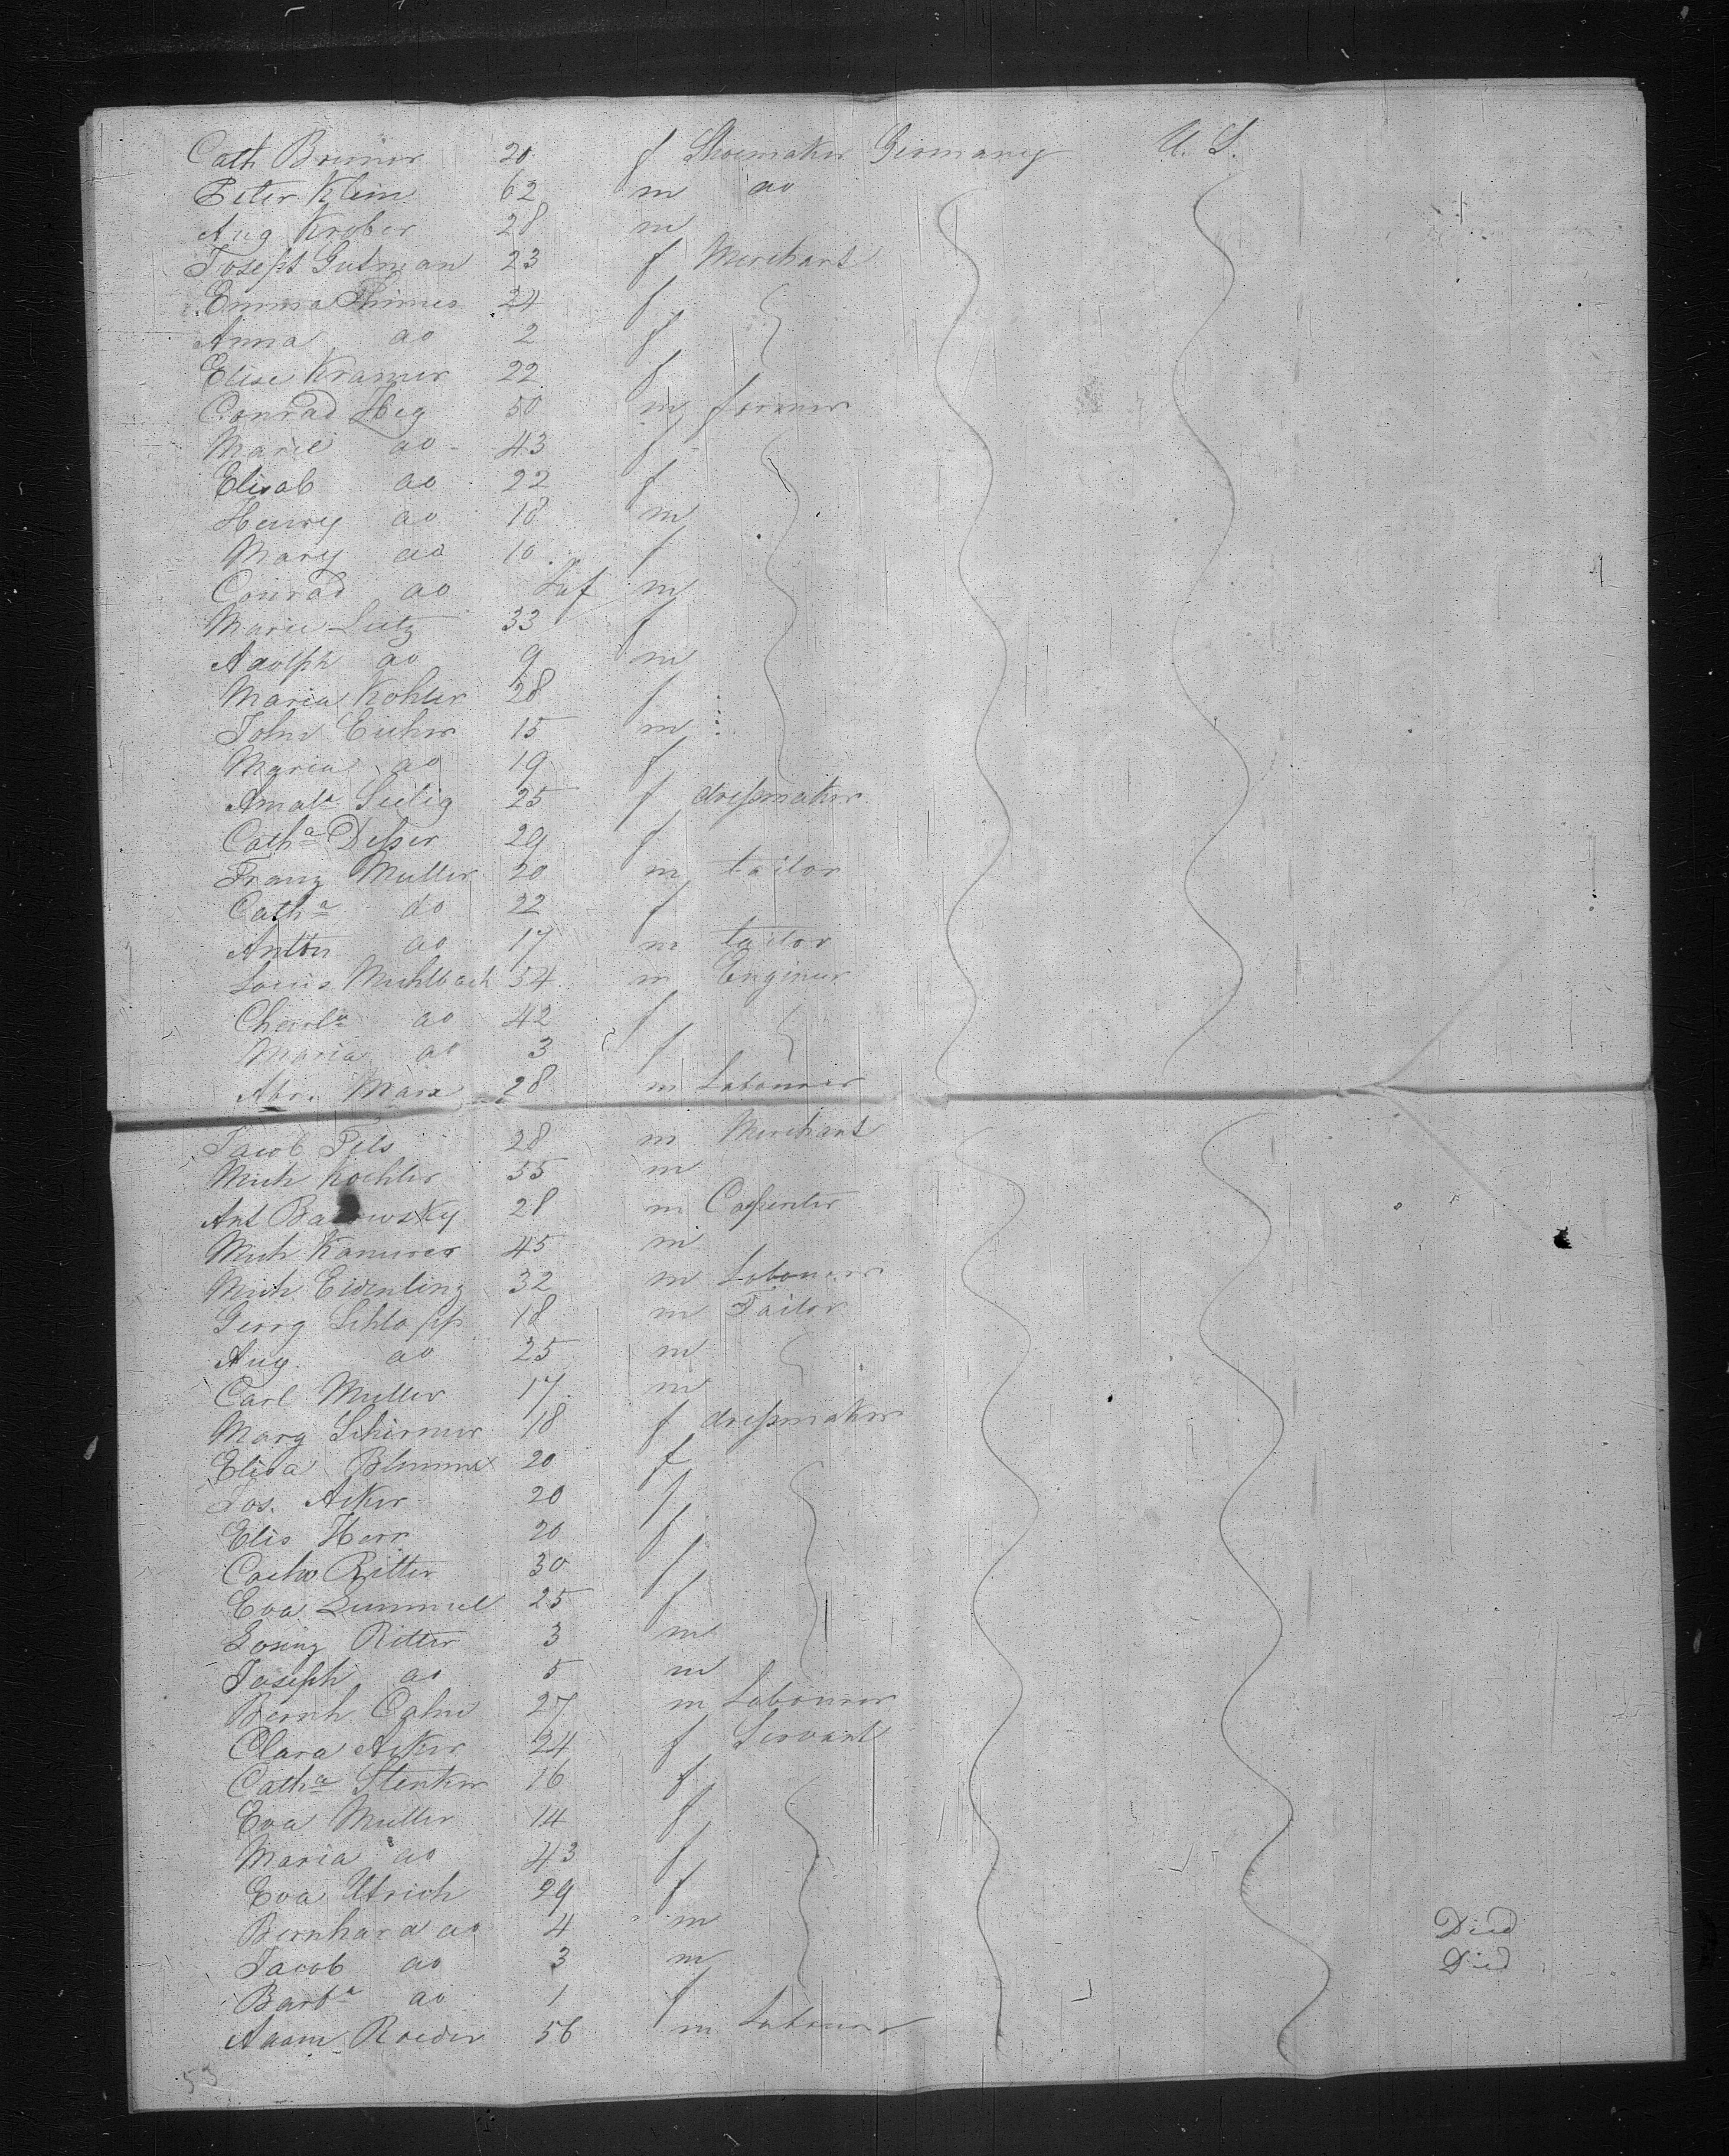 Cath Bremer 20 f Shoemaker Germany U. S.
Peter Klein 62 m do
Aug Krober 28 m
Joseph Gutman 23 f Merchant
Emma Thimes 24 f
Anna do 2 f
Elise Kramer 22 f
Conrad Heg 50 m farmer
Marie do 43 f
Elisab do 22 f
Henry do 18 m
Mary do 10 f
Conrad do Inf m
Marie Lutz 33 f
Adolph do 9 m
Maria Kohler 28 f
John Eicher 15 m
Maria do 19 f
Amala Seelig 25 f dressmaker
Catha Desser 29 f
Franz Muller 20 m tailor
Catha do 22 f
Anton do 17 m tailor
Louis Muhlbach 54 m Engineer
Charla do 42 f
Maria do 3 f
Abr. Marx 28 m Labourer
Jacob Fels 28 m Merchant
Mich Koehler 35 m
Ant 28 m Capenter
Mich 45 m
Mich Eidenling 32 m Labourer
Georg Schlapp 18 m Tailor
Aug. do 25 m
Carl Muller 17 m
Marg Schirmer 18 f dressmaker
Elisa Blumme 20 f
Jos. Acker 20 f
Elis Herr 20 f
Catha Ritter 30 f
Eva Lummel 25 f
Ritter 3 m
Joseph do 5 m
Bernh Cahn 27 m Labourer
Clara Acker 24 f Servant
Catha Stenker 16 f
Eva Muller 14 f
Maria do 43 f
Eva Utrich 29 f
Bernhard do 4 m Died
Jacob do 3 m Died
Barba do 1 f
Adam Roeder 56 m Labourer
53